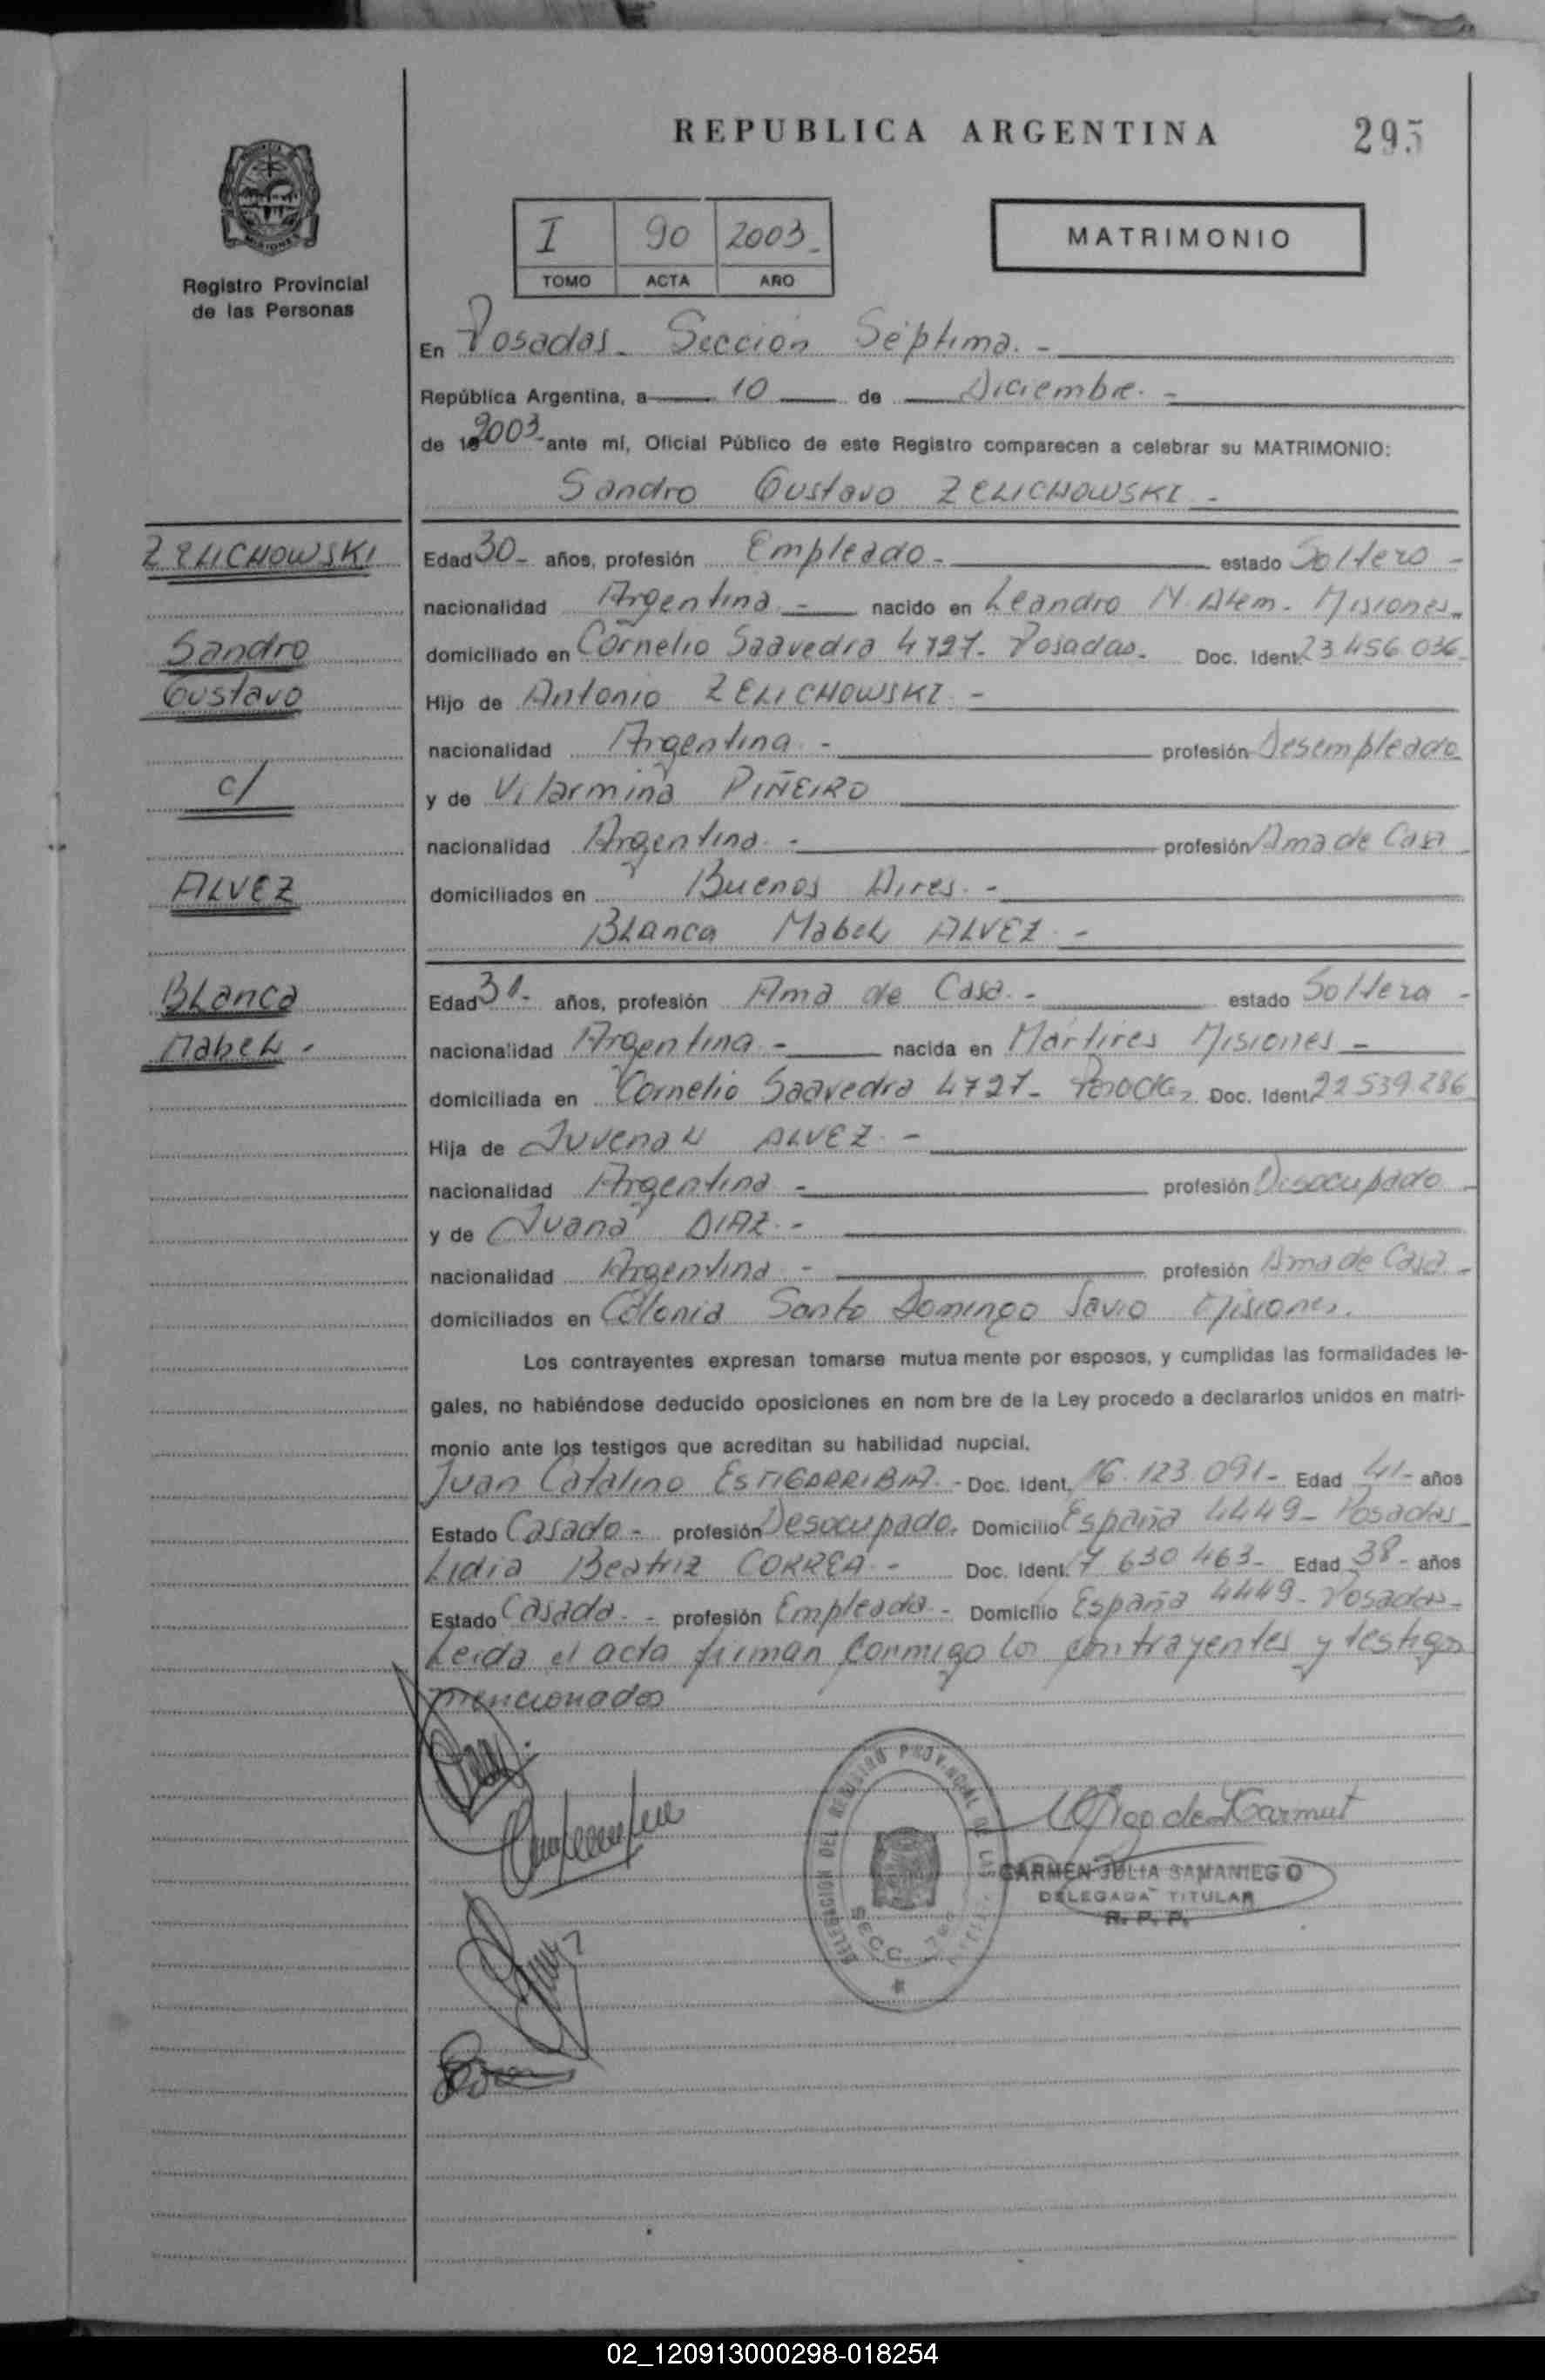 REPUBLICA ARGENTINA
295
MISIONES
Registro Provincial
de las Personas
I 90 2003
TOMO ACTA AÑO
MATRIMONIO
En Posadas Sección Séptima
República Argentina, a 10 de Diciembre
de 19 2003 ante mí, Oficial Público de este Registro comparecen a celebrar su MATRIMONIO:
Sandro Gustavo ZELICHOWSKI
ZELICHOWSKI
Sandro
Gustavo
c/
ALVEZ
Blanca
Mabel
Edad 30 años, profesión Empleado estado Soltero
nacionalidad Argentina nacido en Leandro N. Alem. Misiones
domiciliado en Cornelio Saavedra 4727 Posadas. Doc. Ident. 23.456.036
Hijo de Antonio ZELICHOWSKI
nacionalidad Argentina profesión Desempleado
y de Vilarmina PIÑEIRO
nacionalidad Argentina profesión Ama de Casa
domiciliados en Buenos Aires
Blanca Mabel ALVEZ
Edad 31 años, profesión Ama de Casa estado Soltera
nacionalidad Argentina nacida en Mártires Misiones
domiciliada en Cornelio Saavedra 4727 Posadas Doc. Ident. 22.539.286
Hija de Juvenal ALVEZ
nacionalidad Argentina profesión Desocupado
y de Juana DIAZ
nacionalidad Argentina profesión Ama de Casa
domiciliados en Colonia Santo Domingo Savio Misiones.
Los contrayentes expresan tomarse mutua mente por esposos, y cumplidas las formalidades le-
gales, no habiéndose deducido oposiciones en nom bre de la Ley procedo a declararlos unidos en matri-
monio ante los testigos que acreditan su habilidad nupcial.
Juan Catalino ESTIGARRIBIA Doc. Ident. 16.123.091 Edad 41 años
Estado Casado profesión Desocupado. Domicilio España 4449 Posadas
Lidia Beatriz CORREA Doc. Ident. 17 630 463 Edad 38 años
Estado Casada profesión Empleada Domicilio España 4449 Posadas
Leida el acta firman conmigo los contrayentes y testigos
mencionados
DELEGACION DEL REGISTRO PROVINCIAL DE LAS
SECC. 7ma
CARMEN JULIA SAMANIEGO
DELEGADA TITULAR
R. P. P.
02_120913000298-018254